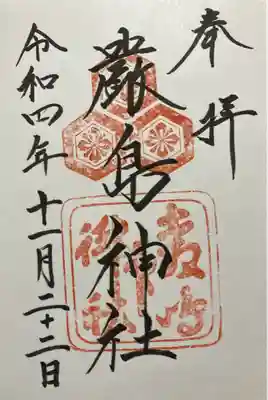 奉拝
厳島神社
令和四年十一月二十二日